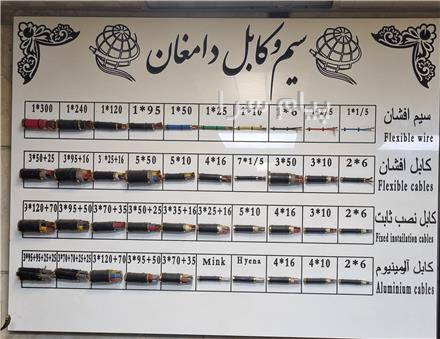 سیم و کابل دامغان
پیام سرا
1*300 1*240 1*120 1*95 1*50 1*25 1*16 1*6 1*1/5 سیم افشان
Flexible wire
3*50+25 3*95+16 3*25+16 5*50 5*10 4*16 7*1/5 3*50 3*10 2*6 کابل افشان
Flexible cables
3*120+70 3*95+50 3*70+35 3*50+25 3*35+16 3*25+16 5*10 4*16 3*10 2*6 کابل نصب ثابت
Fixed installation cables
3*95+95+25+25 3*70+70+25+25 3*120+70 3*95+50 3*70+35 Mink Hyena 4*16 4*10 2*6 کابل آلومینیوم
Aluminium cables